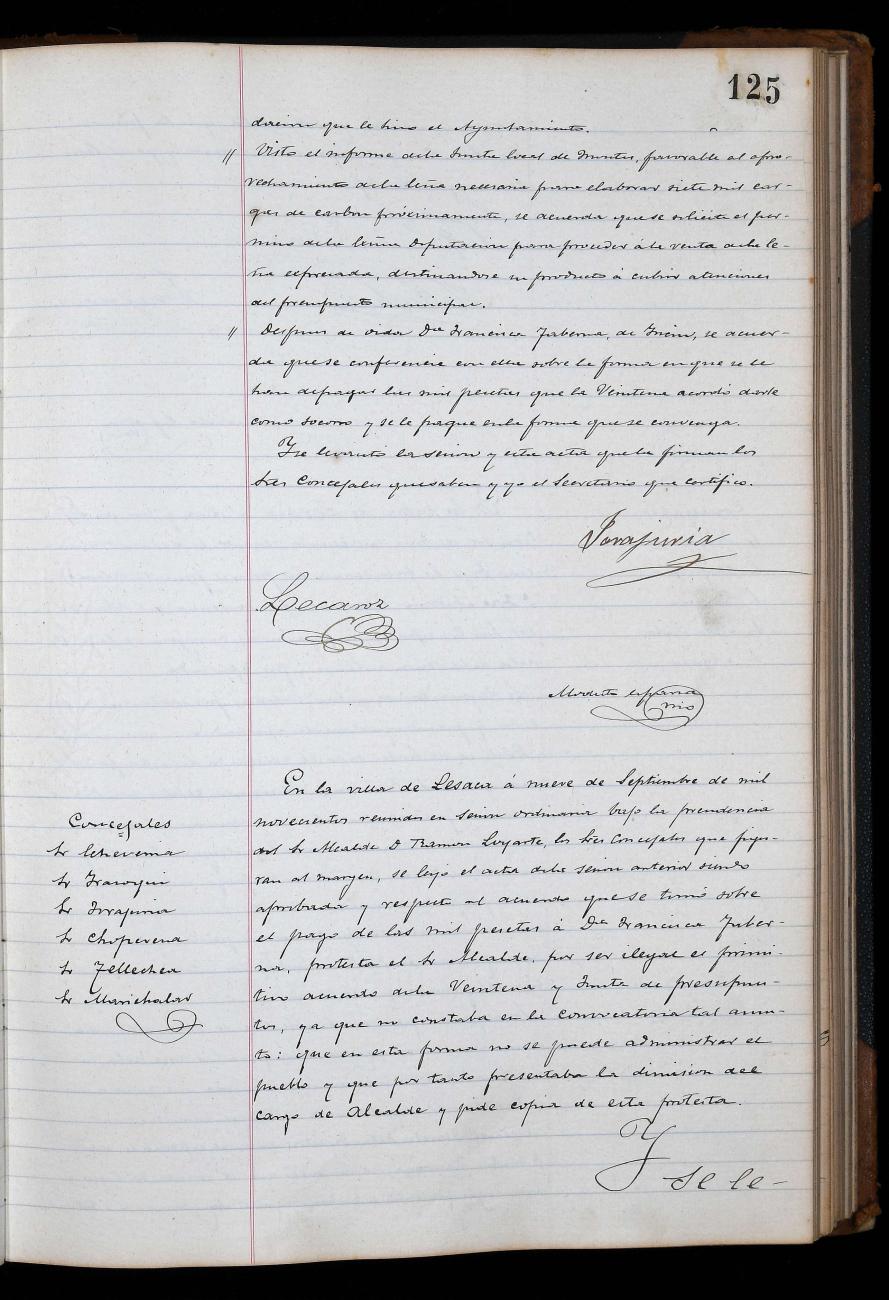 125
que le hizo el Ayuntamiento.
// Visto el informe de la Junta local de Montes, favorable al apro-
vechamiento de la leña necesaria para elaborar siete mil car-
gas de carbon próximamente, se acuerda que se solicite el per-
miso de la Excma Diputacion para proceder á la venta de la le-
ña expresada, destinandose su producto á cubrir atenciones
del presupuesto municipal.
// Despues de oida Dª Francisca Taberna, de se acuer-
da que se conferencie con ella sobre la forma en que se le
han de pagar las mil pesetas que la Veintena acordó darle
como socorro y se le pague en la forma que se convenga.
Y se levantó la sesion y esta acta que la firman los
Sres Concejales que saben y yo el Secretario que certifico.
Lecaroz
Modesto
En la villa de Lesaca á nueve de Septiembre de mil
novecientos reunidos en sesion ordinaria bajo la presidencia
del Sr Alcalde D Ramon los Sres Concejales que figu-
ran al margen, se leyó el acta de la sesion anterior siendo
aprobada y respecto al acuerdo que se tomó sobre
el pago de las mil pesetas á Dª Francisca Taber-
na, protesta el Sr Alcalde, por ser ilegal el primi-
tivo acuerdo de la Veintena y Junta de presupues-
tos, ya que no constaba en la convocatoria tal asun-
to: que en esta forma no se puede administrar el
pueblo y que por tanto presentaba la dimision del
cargo de Alcalde y pide copia de esta protesta.
Y
se le-
Concejales
Sr Echeverria
Sr
Sr
Sr Choperena
Sr Tellechea
Sr Marichalar